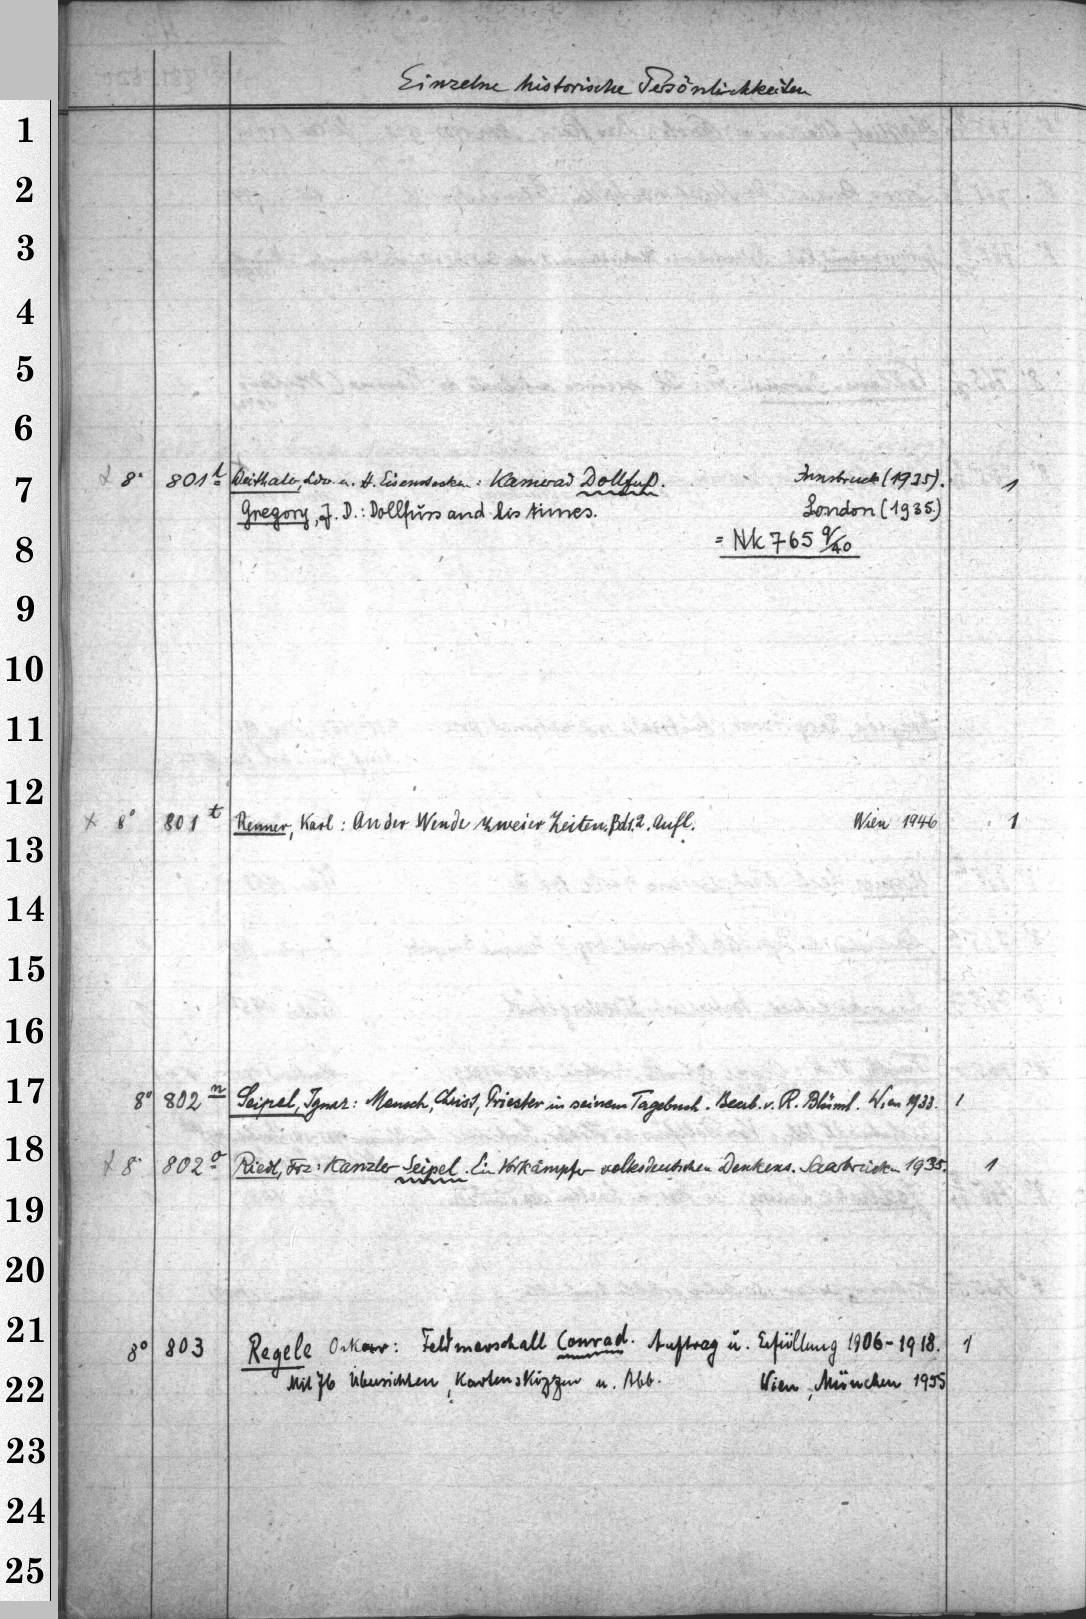 Einzelne historische Persönlichkeiten
1
2
3
4
5
6
7
8
9
10
11
12
13
14
15
16
17
18
19
20
21
22
23
24
25
x 8° 801 l Reithale, Ldw. u. H. Eisenstecken: Kamerad Dollfuß. Innsbruck (1935). 1
Gregory, J. D.: Dollfuss and his times. London (1935)
= Nk 765 9/40
x 8° 801 t Renner, Karl: An der Wende zweier Zeiten. Bd1. 2. Aufl. Wien 1946 1
8° 802 n Seipel, Ignaz: Mensch, Christ, Priester in seinem Tagebuch. Bearb. v. R. Blüml. Wien 1933. 1
x 8° 802 o Riedl, Frz: Kanzler Seipel. Ein Vorkämpfer volksdeutschen Denkens. Saarbrücken 1935. 1
8° 803 Regele Oskar: Feldmarschall Conrad. Auftrag u. Erfüllung 1906-1918. 1
Mit 76 Übersichten, Kartenskizzen u. Abb. Wien, München 1955